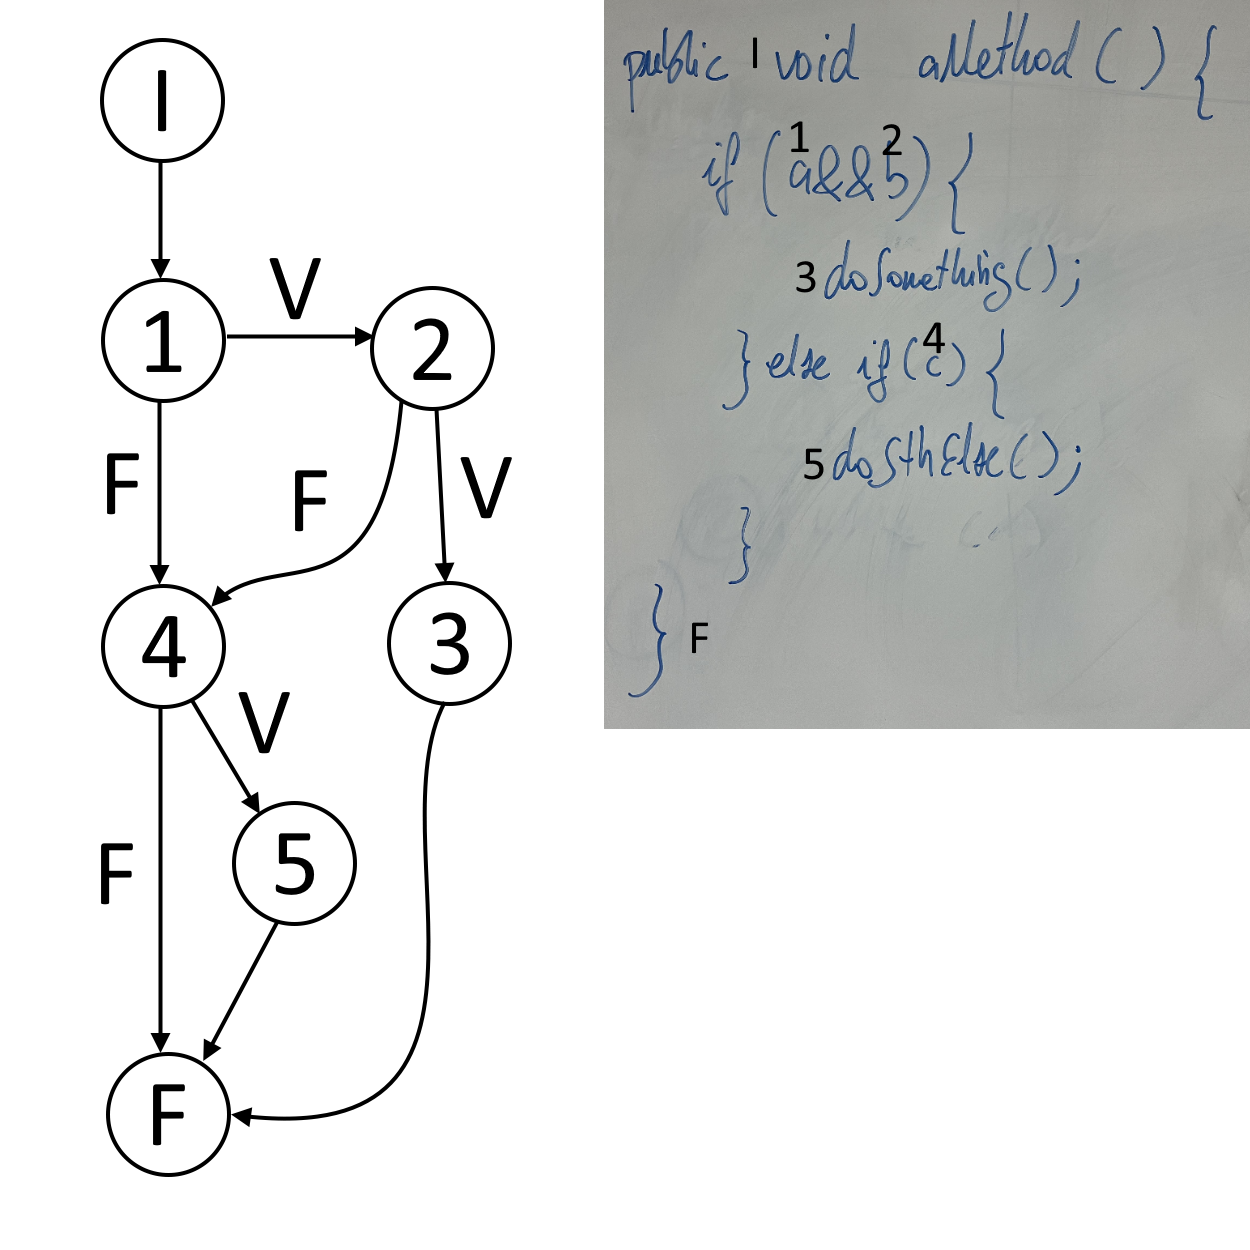 I
1
V
2
F
F
V
4
3
V
F
5
F
public I void aMethod() {
if (a&&b) {
1 2
3 doSomething();
} else if (c) {
4
5 doSthElse();
}
} F